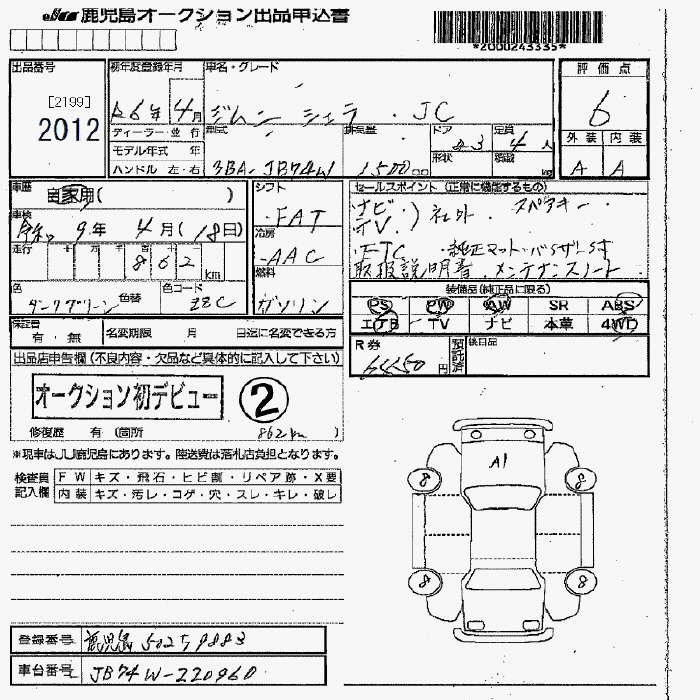 鹿児島オークション出品申込書
*2000243335*
出品番号 初年度登録年月 車名・グレード 評価点
[2199]
2012
R6年 4月 ジムニー シエラ ・ JC 6
ディーラー・並行 型式 排気量 ドア 定員 外装 内装
3 4人
モデル年式 年 形状 積載
ハンドル 左・右 3BA-JB74W 1500cc kg A A
車歴 自家用( ) シフト セールスポイント (正常に機能するもの)
・FAT ナビ・TV.)社外 スペアキー・
車検 令和 9年 4月(18日)
冷房 ・AAC
・ETC ・純正マット・バイザー
取扱説明書・メンテナンスノート
走行 十 万 千 百 十 862km
燃料 ガソリン
色 ダークグリーン 色替 色コード ZZC
装備品(純正品に限る)
PS PW AW SR ABS
エアB TV ナビ 本革 4WD
保証書 有・無 名変期限 月 日迄に名変できる方
R券 円 預託済 後日品
出品店申告欄(不良内容・欠品など具体的に記入して下さい)
オークション初デビュー ②
修復歴 有 (箇所 862km )
※現車はJU鹿児島にあります。陸送費は落札店負担となります。
検査員記入欄 FW キズ・飛石・ヒビ割・リペア跡・X要
内装 キズ・汚レ・コゲ・穴・スレ・キレ・破レ
A1
8 8
8 8
登録番号 鹿児島 502 9883
車台番号 JB74W-220960